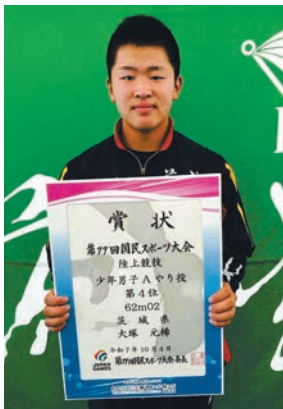 賞状
第79回国民スポーツ大会
陸上競技
少年男子Aやり投
第4位
62m02
茨城県
大塚 元稀
令和7年10月4日
JAPAN
GAMES
第79回国民スポーツ大会会長